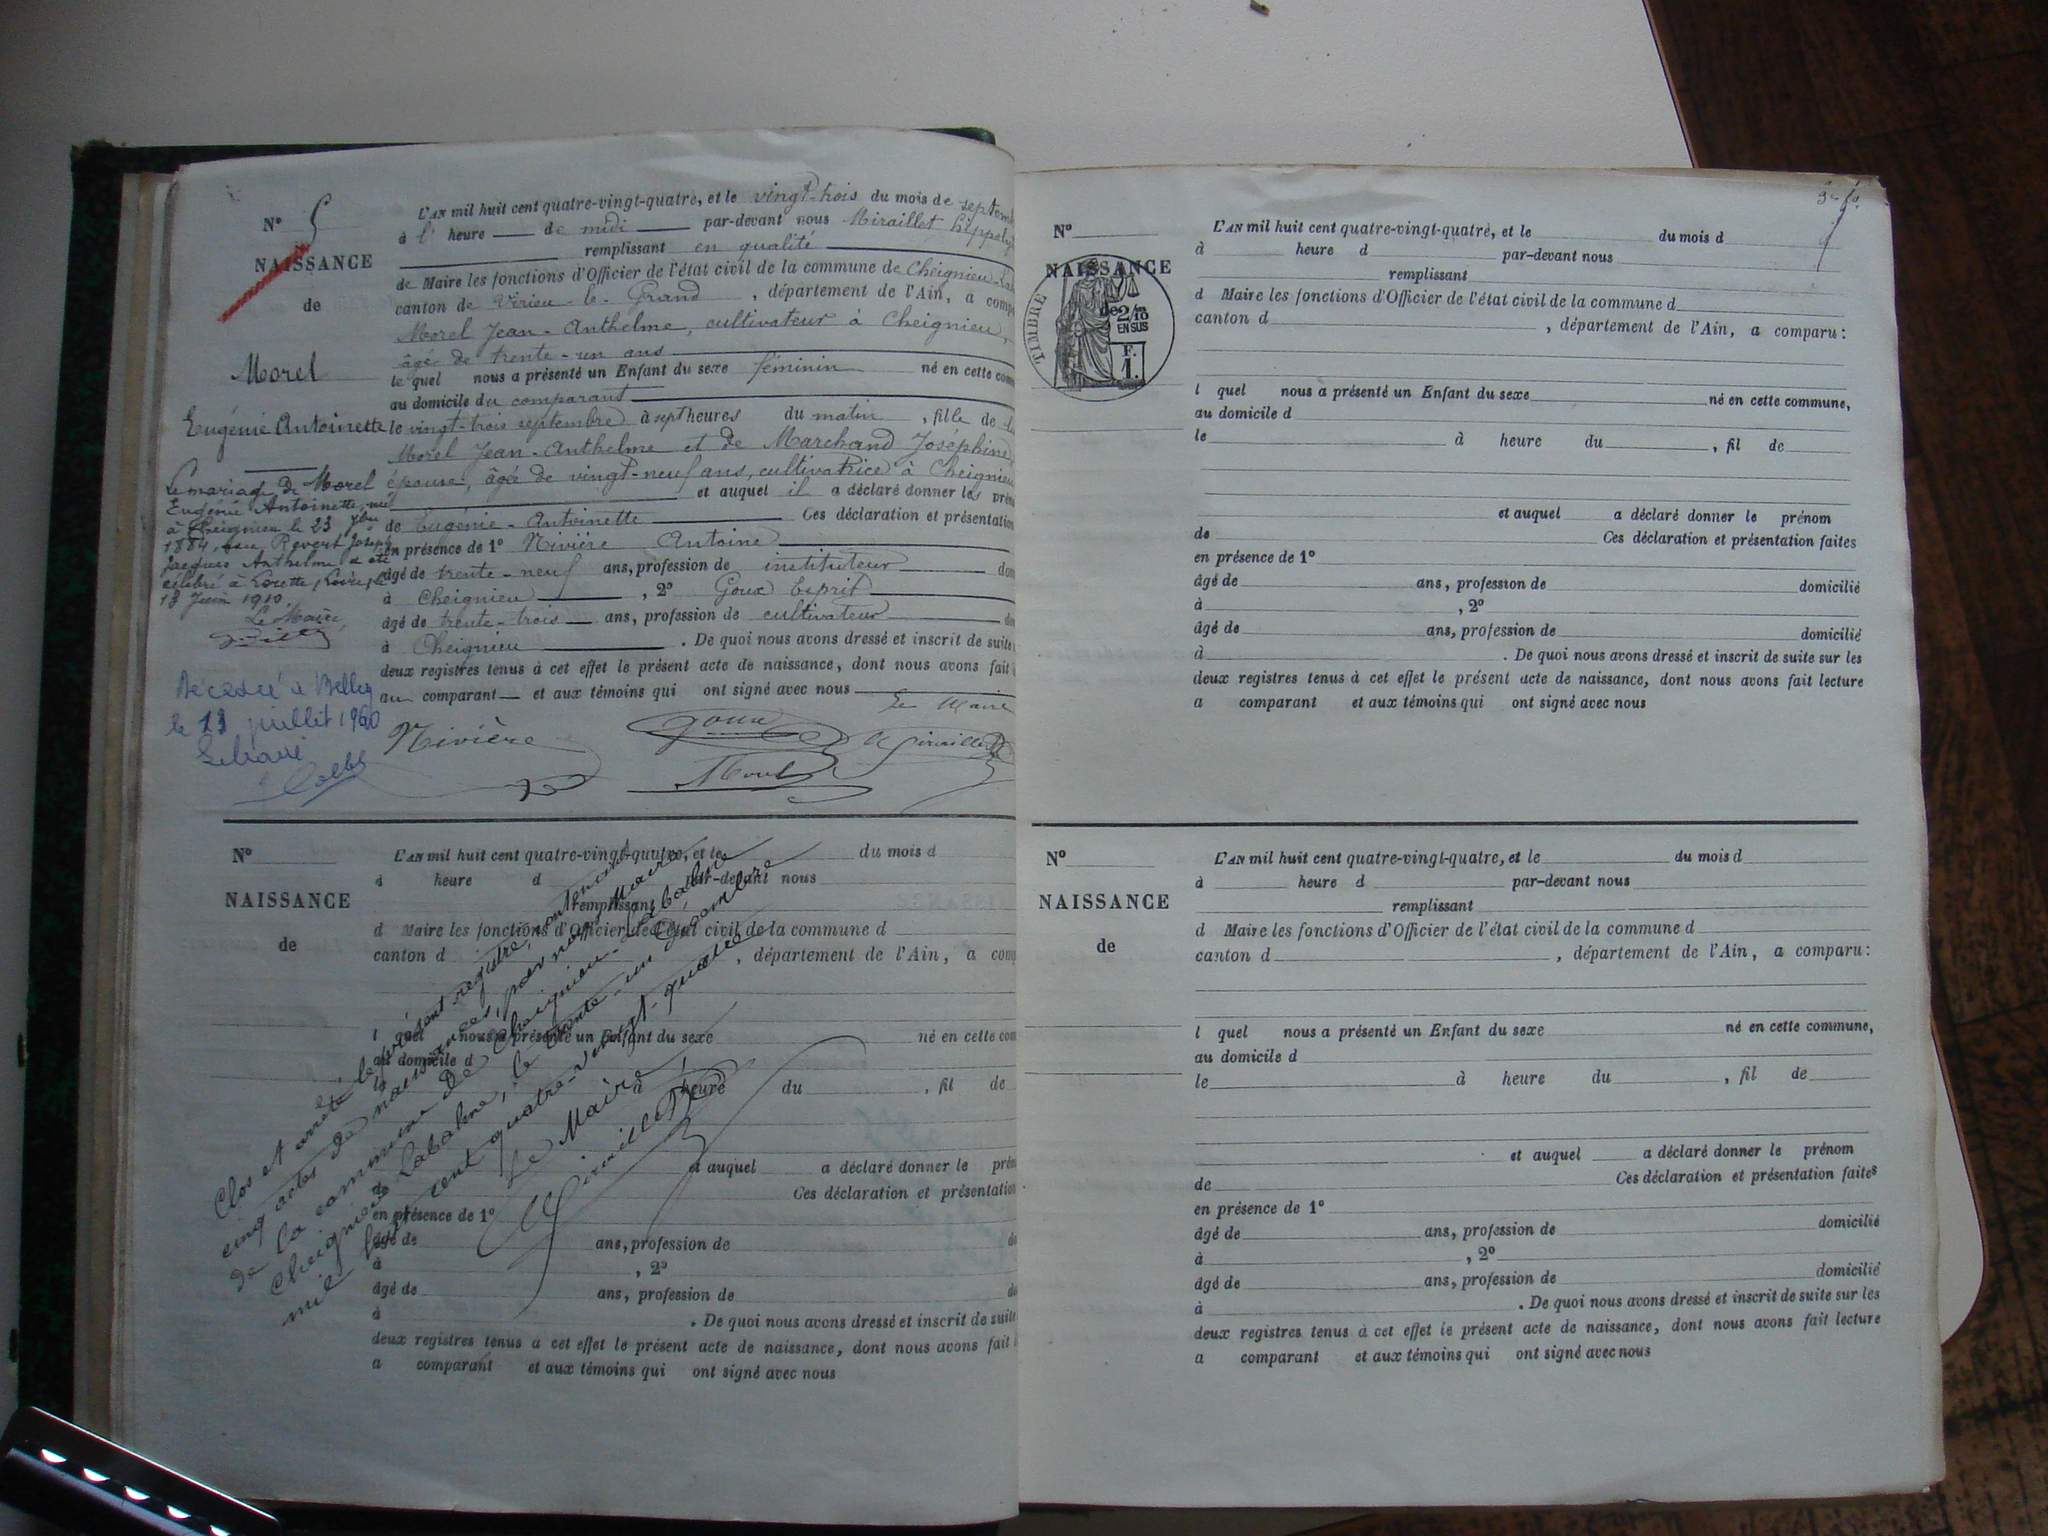 N° 5
NAISSANCE
de
Morel
Eugénie Antoinette
Le mariage de Morel
Eugénie Antoinette, née
à Cheignieu le 23 7bre
1884, avec Revert Joseph
Jacques Anthelme a été
célébré à Lorette, Loire, le
18 Juin 1910.
Le Maire,
Décédée à Belley
le 13 juillet 1960
Le Maire
L'AN mil huit cent quatre-vingt-quatre, et le vingt-trois du mois de septemb
à l' heure de midi par-devant nous Miraillet Hippoly
remplissant en qualité
de Maire les fonctions d'Officier de l'état civil de la commune de Cheignieu-Lab
canton de Virieu-le-Grand, département de l'Ain, a comp
Morel Jean-Anthelme, cultivateur à Cheignieu,
âgé de trente-un ans
le quel nous a présenté un Enfant du sexe féminin né en cette com
au domicile du comparant
le vingt-trois septembre à sept heures du matin, fille de
Morel Jean-Anthelme et de Marchand Joséphine,
épouse, âgée de vingt-neuf ans, cultivatrice à Cheignieu
et auquel il a déclaré donner les prén
de Eugénie-Antoinette Ces déclaration et présentation
en présence de 1° Nivière Antoine
âgé de trente-neuf ans, profession de instituteur dom
à Cheignieu, 2° Goux Esprit
âgé de trente-trois ans, profession de cultivateur do
à Cheignieu. De quoi nous avons dressé et inscrit de suite
deux registres tenus à cet effet le présent acte de naissance, dont nous avons fait
au comparant et aux témoins qui ont signé avec nous
Le Maire
Nivière Goux Miraillet
Morel
N°
NAISSANCE
de
L'AN mil huit cent quatre-vingt-quatre, et le du mois d
à heure d par-devant nous
remplissant
d Maire les fonctions d'Officier de l'état civil de la commune d
canton d , département de l'Ain, a comp
l quel nous a présenté un Enfant du sexe né en cette com
au domicile d
le à heure du , fil de
et auquel a déclaré donner le prén
de Ces déclaration et présentation
en présence de 1°
âgé de ans, profession de do
à , 2°
âgé de ans, profession de do
à . De quoi nous avons dressé et inscrit de suite
deux registres tenus à cet effet le présent acte de naissance, dont nous avons fait
a comparant et aux témoins qui ont signé avec nous
Clos et arrêté le présent registre, contenant
cinq actes de naissances, par nous, Maire
de la commune de Cheignieu-Labalme
Cheignieu-Labalme, le trente-un décembre
mil huit cent quatre-vingt-quatre
Le Maire,
Miraillet
N°
NAISSANCE
de
TIMBRE
2/10
EN SUS
F.
1.
L'AN mil huit cent quatre-vingt-quatre, et le du mois d
à heure d par-devant nous
remplissant
d Maire les fonctions d'Officier de l'état civil de la commune d
canton d , département de l'Ain, a comparu:
l quel nous a présenté un Enfant du sexe né en cette commune,
au domicile d
le à heure du , fil de
et auquel a déclaré donner le prénom
de Ces déclaration et présentation faites
en présence de 1°
âgé de ans, profession de domicilié
à , 2°
âgé de ans, profession de domicilié
à . De quoi nous avons dressé et inscrit de suite sur les
deux registres tenus à cet effet le présent acte de naissance, dont nous avons fait lecture
a comparant et aux témoins qui ont signé avec nous
N°
NAISSANCE
de
L'AN mil huit cent quatre-vingt-quatre, et le du mois d
à heure d par-devant nous
remplissant
d Maire les fonctions d'Officier de l'état civil de la commune d
canton d , département de l'Ain, a comparu:
l quel nous a présenté un Enfant du sexe né en cette commune,
au domicile d
le à heure du , fil de
et auquel a déclaré donner le prénom
de Ces déclaration et présentation faites
en présence de 1°
âgé de ans, profession de domicilié
à , 2°
âgé de ans, profession de domicilié
à . De quoi nous avons dressé et inscrit de suite sur les
deux registres tenus à cet effet le présent acte de naissance, dont nous avons fait lecture
a comparant et aux témoins qui ont signé avec nous